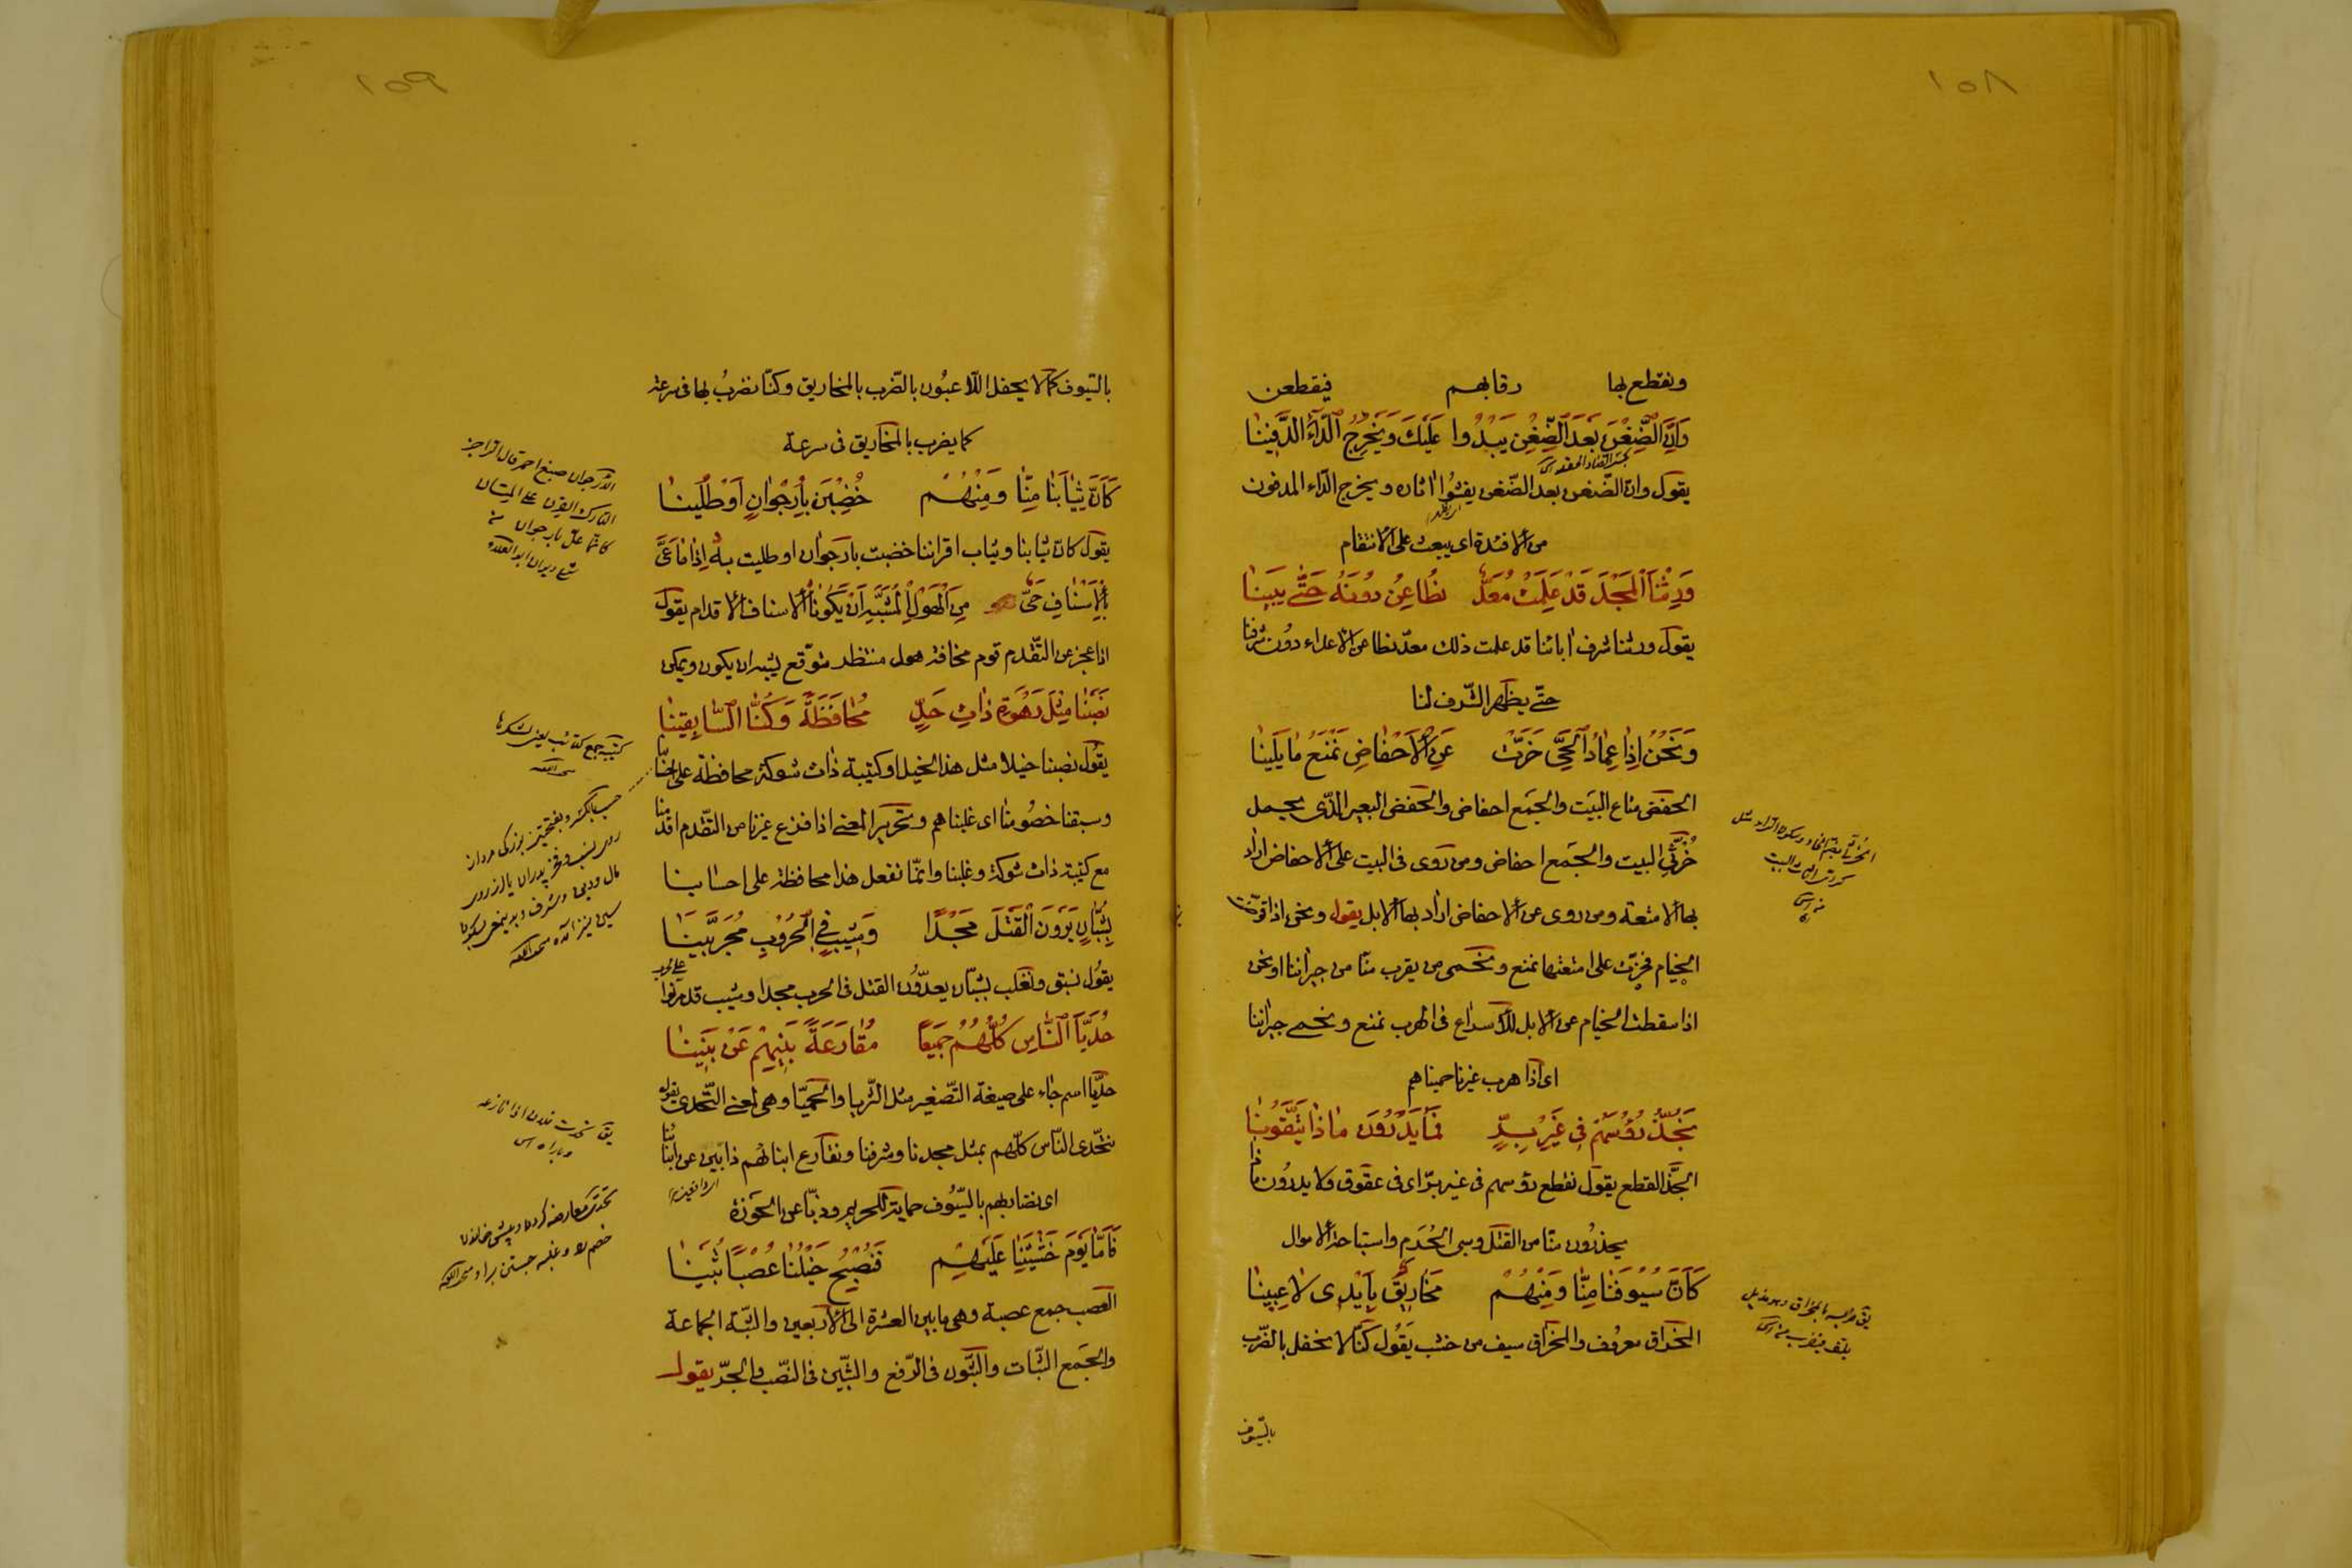 ١٥٨
ونقطع بها رقابهم فيقطعن
وَاِنَّ الضِّغْنَ بَعْدَ الضِّغْنِ يَبْدُوا عَلَيْكَ وَيَخْرِجُ الدَّآءَ الدَّفِينَا
يقول وان الضّغن بعد الضّغن يفشُوا اثاره ويخرج الدّاء المدفون
من الافئدة اى يبعث على الانتقام
وَرِثْنَا الْمَجْدَ قَدْ عَلِمَتْ مُعَدٌّ نُطَاعِنُ دُونَهُ حَتّٰى يَبِينَا
يقول ورثنا شرف اٰبائنا قد علمت ذلك معدّ نطاعن الاعداء دون شرفنا
حتّى يظهر الشّرف لنا
وَنَحْنُ اِذَا عِمَادُ الْحَىِّ خَرَّتْ عَنِ الْاَحْفَاضِ نَمْنَعُ مَا يَلِينَا
الحفض متاع البيت والجمع احفاض والحفض البعير الذّى يحمل
خُرثّى البيت والجمع احفاض ومن روى فى البيت على الاحفاض اراد
بها الامتعة ومن روى عن الاحفاض اراد بها الابل يقول ونحن اذا قوّضت
الخيام فخرّت على امتعتها نمنع ونحمى من يقرب منّا من جيراننا او نحن
اذا سقطت الخيام عن الابل للاسراع فى الهرب نمنع ونحمى جيراننا
اى اذا هرب غيرنا حميناهم
نَجُذُّ رُؤُسَهُمْ فِى غَيْرِ بِرٍّ فَمَا يَدْرُونَ مَاذَا يَتَّقُونَا
الجذّ القطع يقول نقطع رؤسهم فى غير برّ اى فى عقوق ولا يدرون ماذا
يحذرون منّا من القتل وسبى الحُرَم واستباحة الاموال
كَاَنَّ سُيُوفَنَا مِنَّا وَمِنْهُمْ مَخَارِيقٌ بِاَيْدِى لَاعِبِينَا
المخراق معروف والمخراق سيف من خشب يقول كنّا لا نحفل بالضّرب
بالسّيوف
١٥٩
بالسّيوف كما لا يحفل اللّاعبُون بالضّرب بالمخاريق وكنّا نضربُ بها فى سرعة
كما يضرب بالمخاريق فى سرعة
كَاَنَّ ثِيَابَنَا مِنَّا وَمِنْهُمْ خُضِبْنَ بِاُرْجُوَانٍ اَوْ طُلِينَا
يقول كانّ ثيابنا وثياب اقراننا خضبت بارجوان او طليت به اِذَا مَا عَىَّ
بِالْاِسْنَافِ حَىٌّ مِنَ الْهَوْلِ الْمُشَبَّهِ اَنْ يَكُونَا الاسناف الاقدام يقول
اذا عجز عن التّقدم قوم مخافة هول منتظر متوقّع يشبه ان يكون ويمكن
نَصَبْنَا مِثْلَ رَهْوَةَ ذَاتِ حَدٍّ مُحَافَظَةً وَكُنَّا السَّابِقِينَا
يقول نصبنا خيلا مثل هذا الخيل او كتيبة ذات شوكة محافظة على احسابنا
وسبقنا خصُومنا اى غلبناهم وتحرير المعنى اذا فزع غيرنا من التّقدم اقدمنا
مع كتيبة ذات شوكة وغلبنا وانّما نفعل هذا محافظة على احسابنا
بِشُبَّانٍ يَرَوْنَ الْقَتْلَ مَجْدًا وَشِيبٍ فِى الْحُرُوبِ مُجَرَّبِينَا
يقول نسبق ونغلب بشبّان يعدّون القتل فى الحرب مجدا وشيب قد مرّنوا على الحرب
حُدَيَّا النَّاسِ كُلِّهُمُ جَمِيعًا مُقَارَعَةً بَنِيهِمْ عَنْ بَنِينَا
حديّا اسم جاء على صيغة التّصغير مثل الثّريا والحميّا وهى بمعنى التّحدى يقول
نتحّدى النّاس كلّهم بمثل مجدنا وشرفنا ونقارع ابنائهم ذابّين عن ابنائنا
اى نضاربهم بالسّيوف حماية للحريم وذبّا عن الحوزة
فَاَمَّا يَوْمَ خَشْيَتِنَا عَلَيْهِمْ فَتُصْبِحُ خَيْلُنَا عُصْبًا ثُبِينَا
العصب جمع عصبة وهى ما بين العشرة الى الاربعين والثبّة الجماعة
والجمع الثّبات والثّبون فى الرّفع والثّبين فى النّصب والجرّ يقول
الارجوان صبغ احمر قال الراجز
كتيبه جمع كتائب يعنى لشكرها